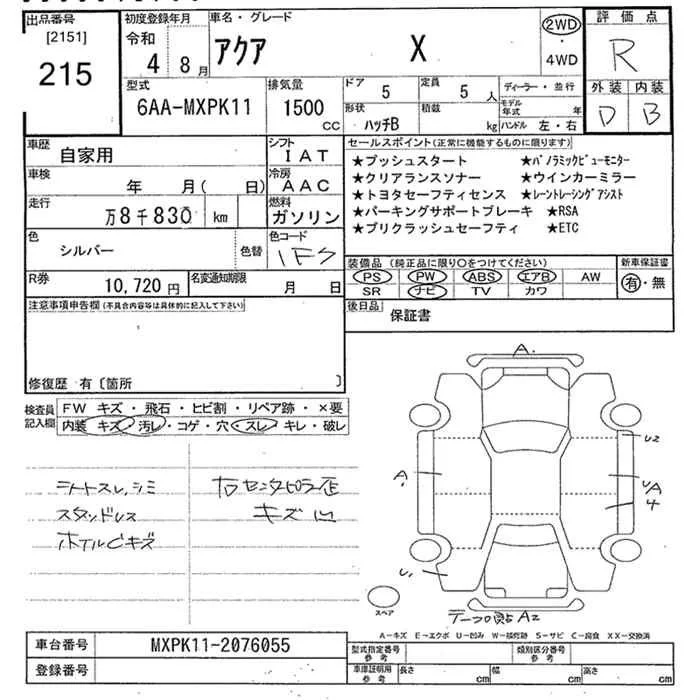 出品番号
[2151]
215
初度登録年月
令和
4 8月
車名・グレード
アクア X
2WD
・
4WD
評価点
R
外装 内装
D B
型式
6AA-MXPK11
排気量
1500
CC
ドア
5
定員
5人
形状
ハッチB
積載
kg
ディーラー・並行
モデル年式 年
ハンドル 左・右
車歴
自家用
シフト
IAT
車検
年 月( 日)
冷房
AAC
走行
万8千830 km
燃料
ガソリン
色
シルバー
色替
色コード
1F7
R券
10,720円
名変通知期限
月 日
セールスポイント(正常に機能するものに限ります)
★プッシュスタート ★パノラミックビューモニター
★クリアランスソナー ★ウインカーミラー
★トヨタセーフティセンス ★レーントレーシングアシスト
★パーキングサポートブレーキ ★RSA
★プリクラッシュセーフティ ★ETC
装備品(純正品に限り○をつけてください)
PS PW ABS エアB AW
SR ナビ TV カワ
新車保証書
有・無
注意事項申告欄(不具合内容等は具体的に記入して下さい)
後日品
保証書
修復歴 有〔箇所 〕
検査員記入欄
FW キズ・飛石・ヒビ割・リペア跡・×要
内装 キズ・汚レ・コゲ・穴・スレ・キレ・破レ
シートスレ,シミ
スタッドレス
ホイルCキズ
右センターピラー歪
キズ 凹
A.
A.
U2
UA
4
U1
スペア
テープ跡 A2
A-キズ E-エクボ U-凹み W-補修跡 S-サビ C-腐食 XX-交換済
車台番号
MXPK11-2076055
登録番号
型式指定番号
参考
類別区分番号
参考
車庫証明用
参考
長さ cm 幅 cm 高さ cm